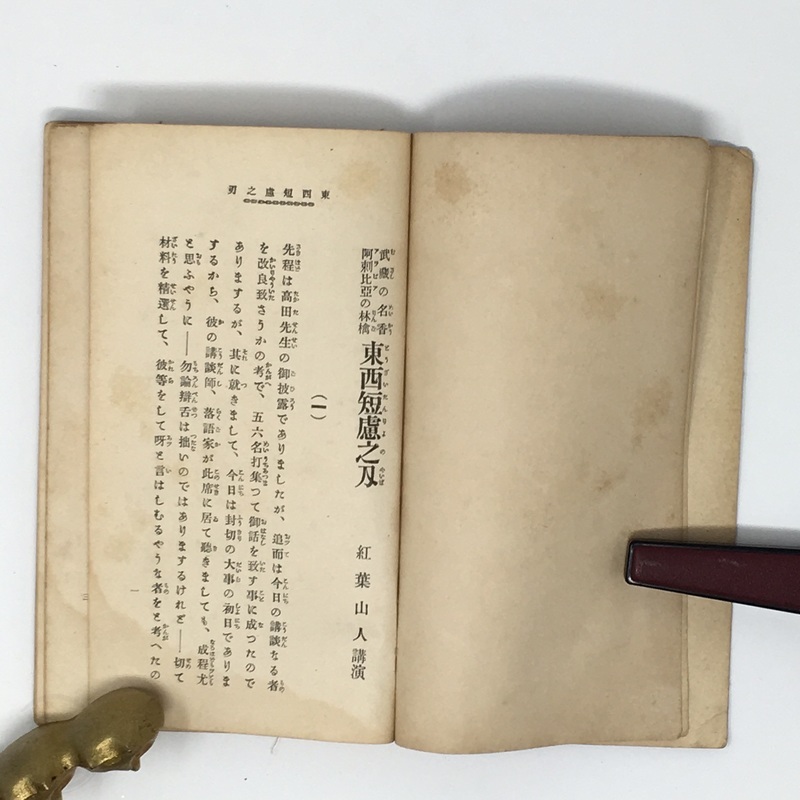 東西短慮之刃
武蔵の名香
阿剌比亞の林檎
東西短慮之刄
紅葉山人講演
(一)
先程は高田先生の御披露でありましたが、追而は今日の講談なる者
を改良致さうかの考で、五六名打集つて御話を致す事に成つたので
ありまするが、其に就きまして、今日は封切の大事の初日でありま
するから、彼の講談師、落語家が此席に居て聽きましても、成程尤
と思ふやうに――勿論辯舌は拙いのではありまするけれど――切て
材料を精選して、彼等をして呀と言はしむるやうな者をと考へたの
一